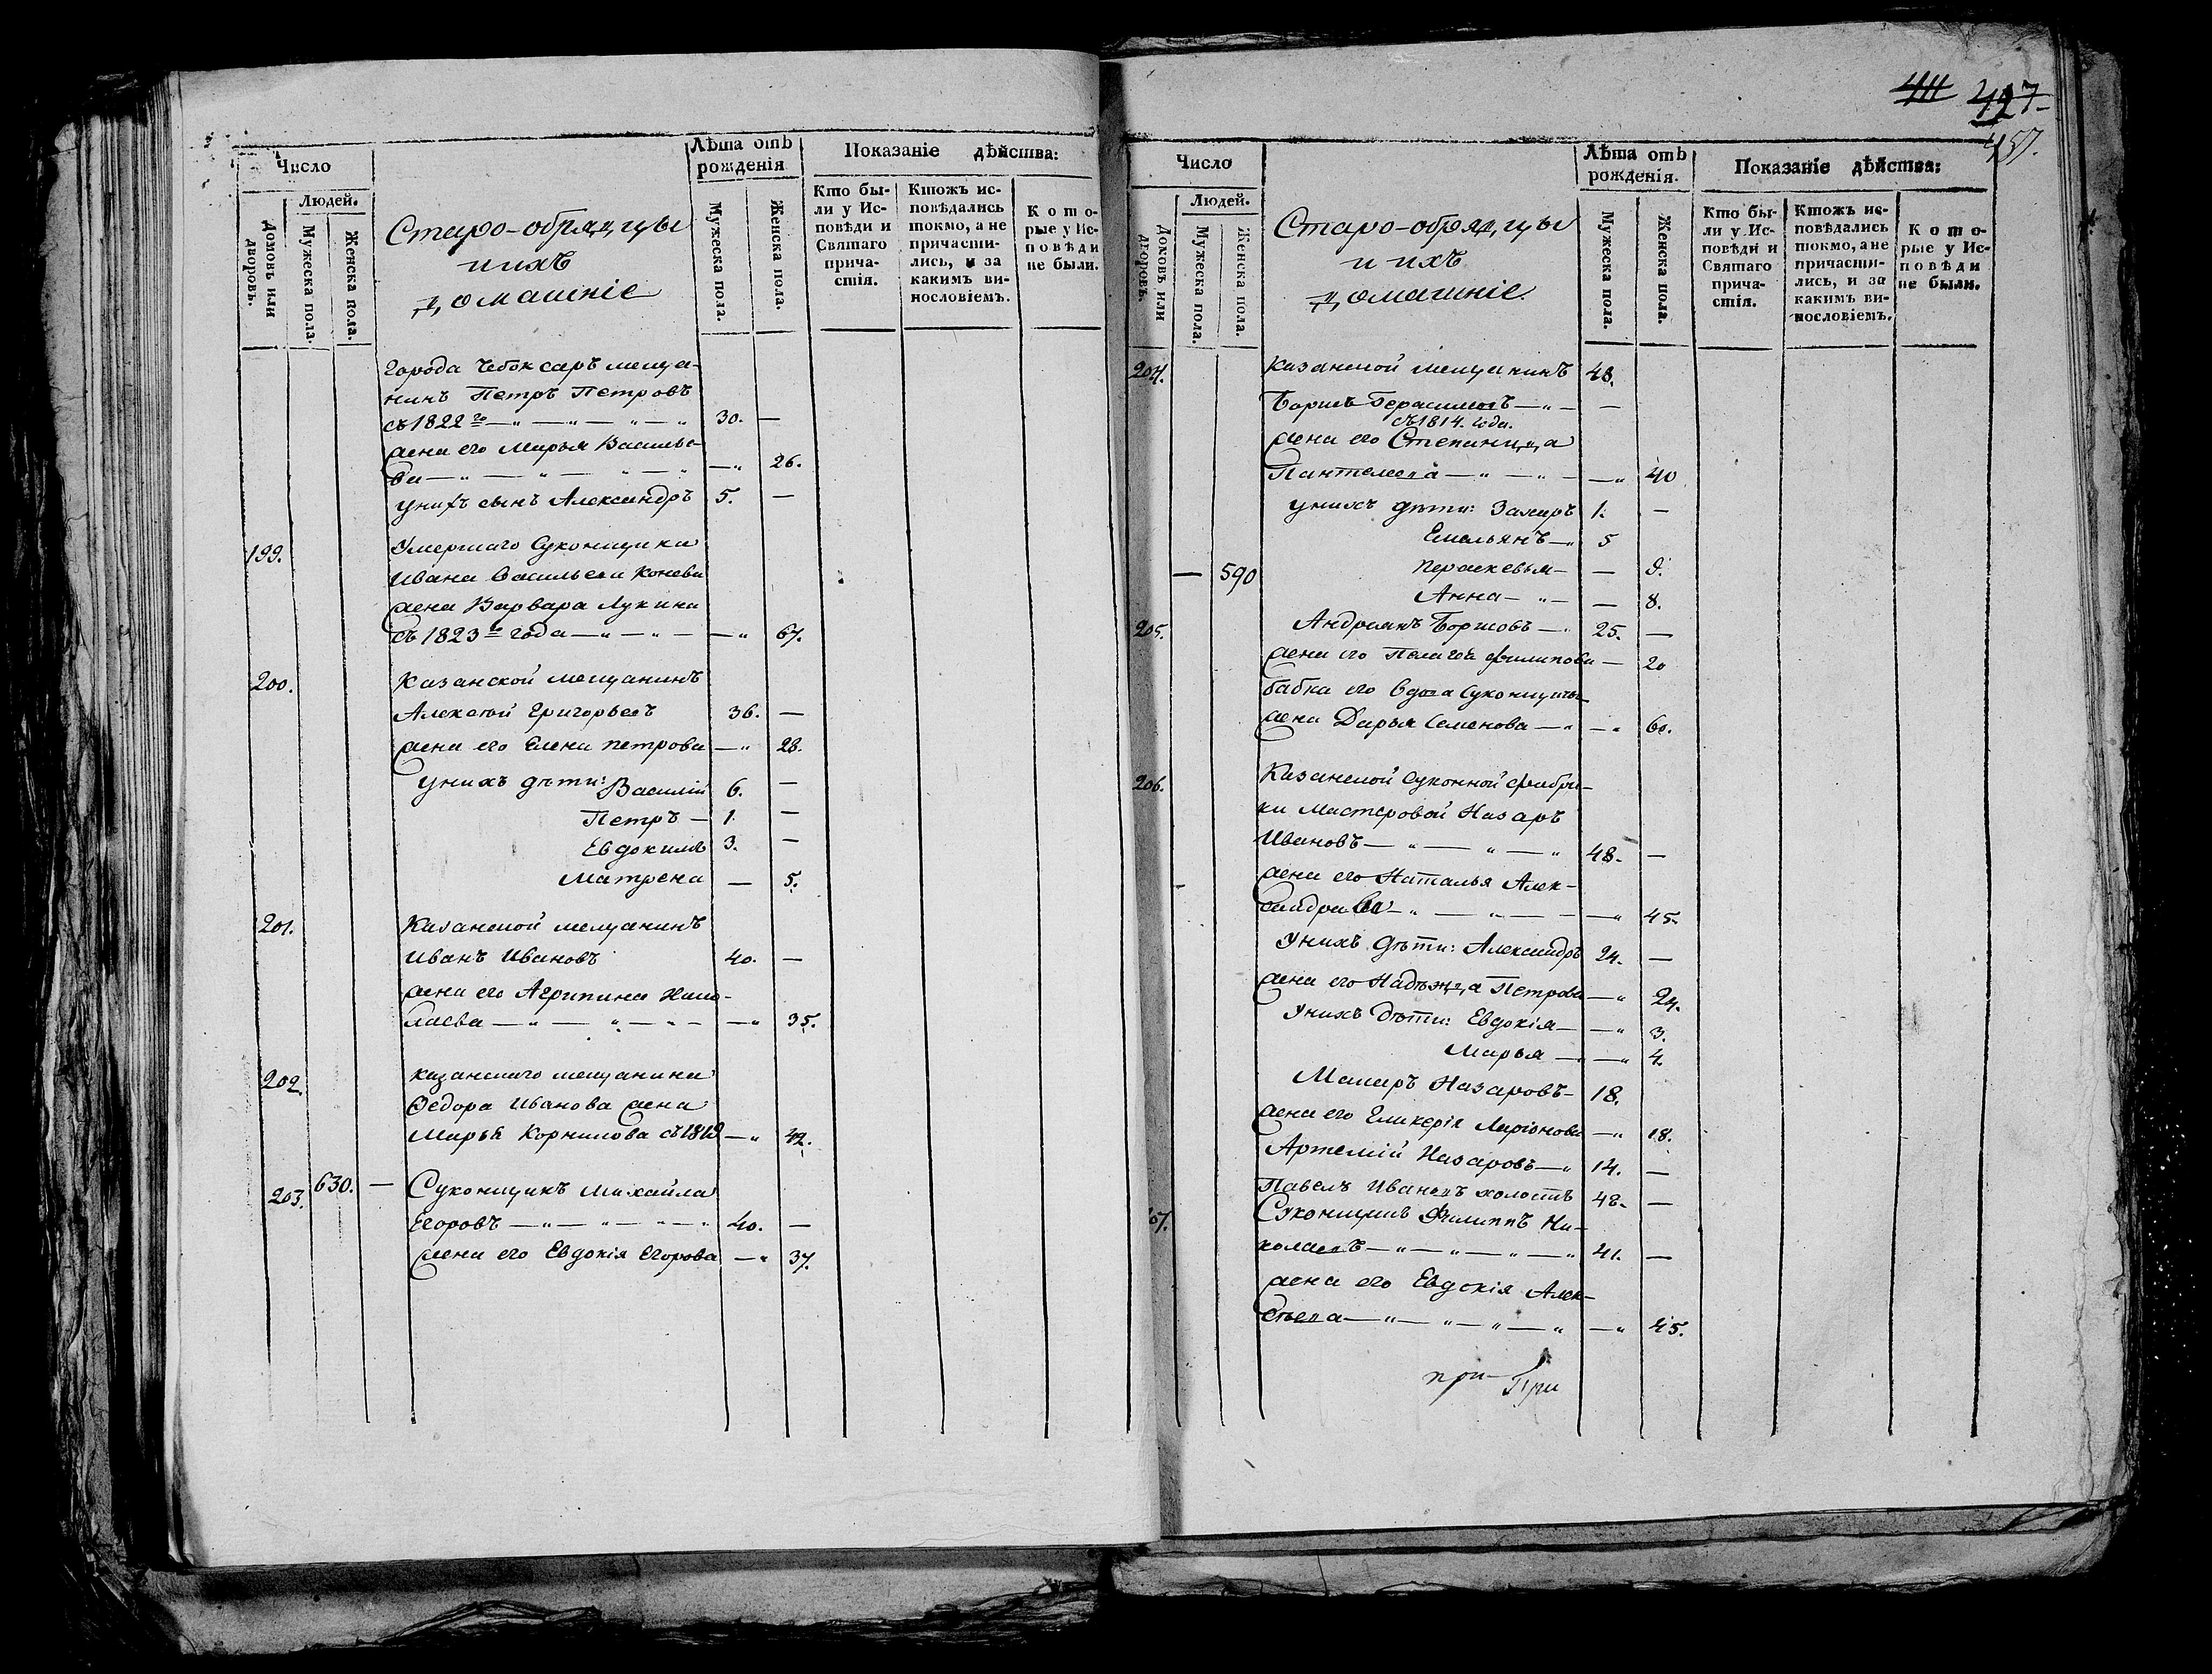 Число
Людей.
Домовъ или дворовъ.
Мужеска пола.
Женска пола.
Старо-обрядцы
и ихъ
домашніе
Лѣта отъ
рожденія
Мужеска пола.
Женска пола.
Показаніе дѣйства:
Кто бы-
ли у Ис-
повѣди и
Святаго
прича-
стія.
Ктожъ ис-
повѣдались
токмо, а не
причасти-
лись, и за
какимъ ви-
нословіемъ.
Кото-
рые у Ис-
повѣди
не были.
Города Чебоксаръ мѣща-
нинъ Петръ Петровъ
съ 1822го — „ — „ — „ — „ 30. —
жена его Марья Василье-
ва — „ — „ — „ — „ — „ 26.
у нихъ сынъ Александръ 5. —
199. Умершаго Суконщика
Ивана Васильева Конева
жена Варвара Лукина
съ 1823го года — „ — „ — — „ 67.
200. Казанской мещанинъ
Алексей Григорьевъ 36. —
жена его Елена Петрова — „ 28.
у нихъ дети: Василій 6. —
Петръ — 1. —
Евдокимъ 3. —
Матрена — 5.
201. Казанской мещанинъ
Иванъ Ивановъ 40. —
жена его Агрипина Нико-
лаева — „ — „ — „ — — „ 35.
202. Казанскаго мещанина
Федора Иванова жена
Марья Корнилова съ 1819 — „ 42.
203. 630. — Суконщикъ Михайла
Егоровъ — „ — „ — „ — „ 40. —
жена его Евдокія Егорова — „ 37.
411 427
457.
Число
Людей.
Домовъ или дворовъ.
Мужеска пола.
Женска пола.
Старо-обрядцы
и ихъ
домашніе.
Лѣта отъ
рожденія.
Мужеска пола.
Женска пола.
Показаніе дѣйства:
Кто бы-
ли у Ис-
повѣди и
Святаго
прича-
стія.
Ктожъ ис-
повѣдались
токмо, а не
причасти-
лись, и за
какимъ ви-
нословіемъ.
Кото-
рые у Ис-
повѣди
не были.
204. Казанской мещанинъ 48.
Борисъ Герасимовъ — „ — —
съ 1814. года.
жена его Степанида
Пантелеева — „ — „ — — „ 40
у нихъ дети: Захаръ 1. —
Емельянъ — „ 5
— 590 Пераскевья — — 9.
Анна — „ — — 8.
205. Андреянъ Борисовъ — „ 25. —
жена его Пелагея Филипова — 20
бабка его вдова Суконщичья
жена Дарья Семенова — „ — „ 60.
206. Казанской Суконной фабри-
ки Мастеровой Назаръ
Ивановъ — „ — „ — „ 48. —
жена его Наталья Алек-
сандрова — „ — „ — — „ 45.
у нихъ дети: Александръ 24. —
жена его Надежда Петрова — „ 24.
у нихъ дети: Евдокія — — „ 3.
Марья — — „ 4.
Макаръ Назаровъ — 18.
жена его Гликерія Ларіонова — „ 18.
Артемій Назаровъ — „ 14. —
Павелъ Ивановъ холостъ 48. —
Суконщикъ Филиппъ Ни-
колаевъ — „ — „ — „ — „ 41. —
жена его Евдокія Алек-
сѣева — „ — „ — „ — „ — „ 45.
при- При